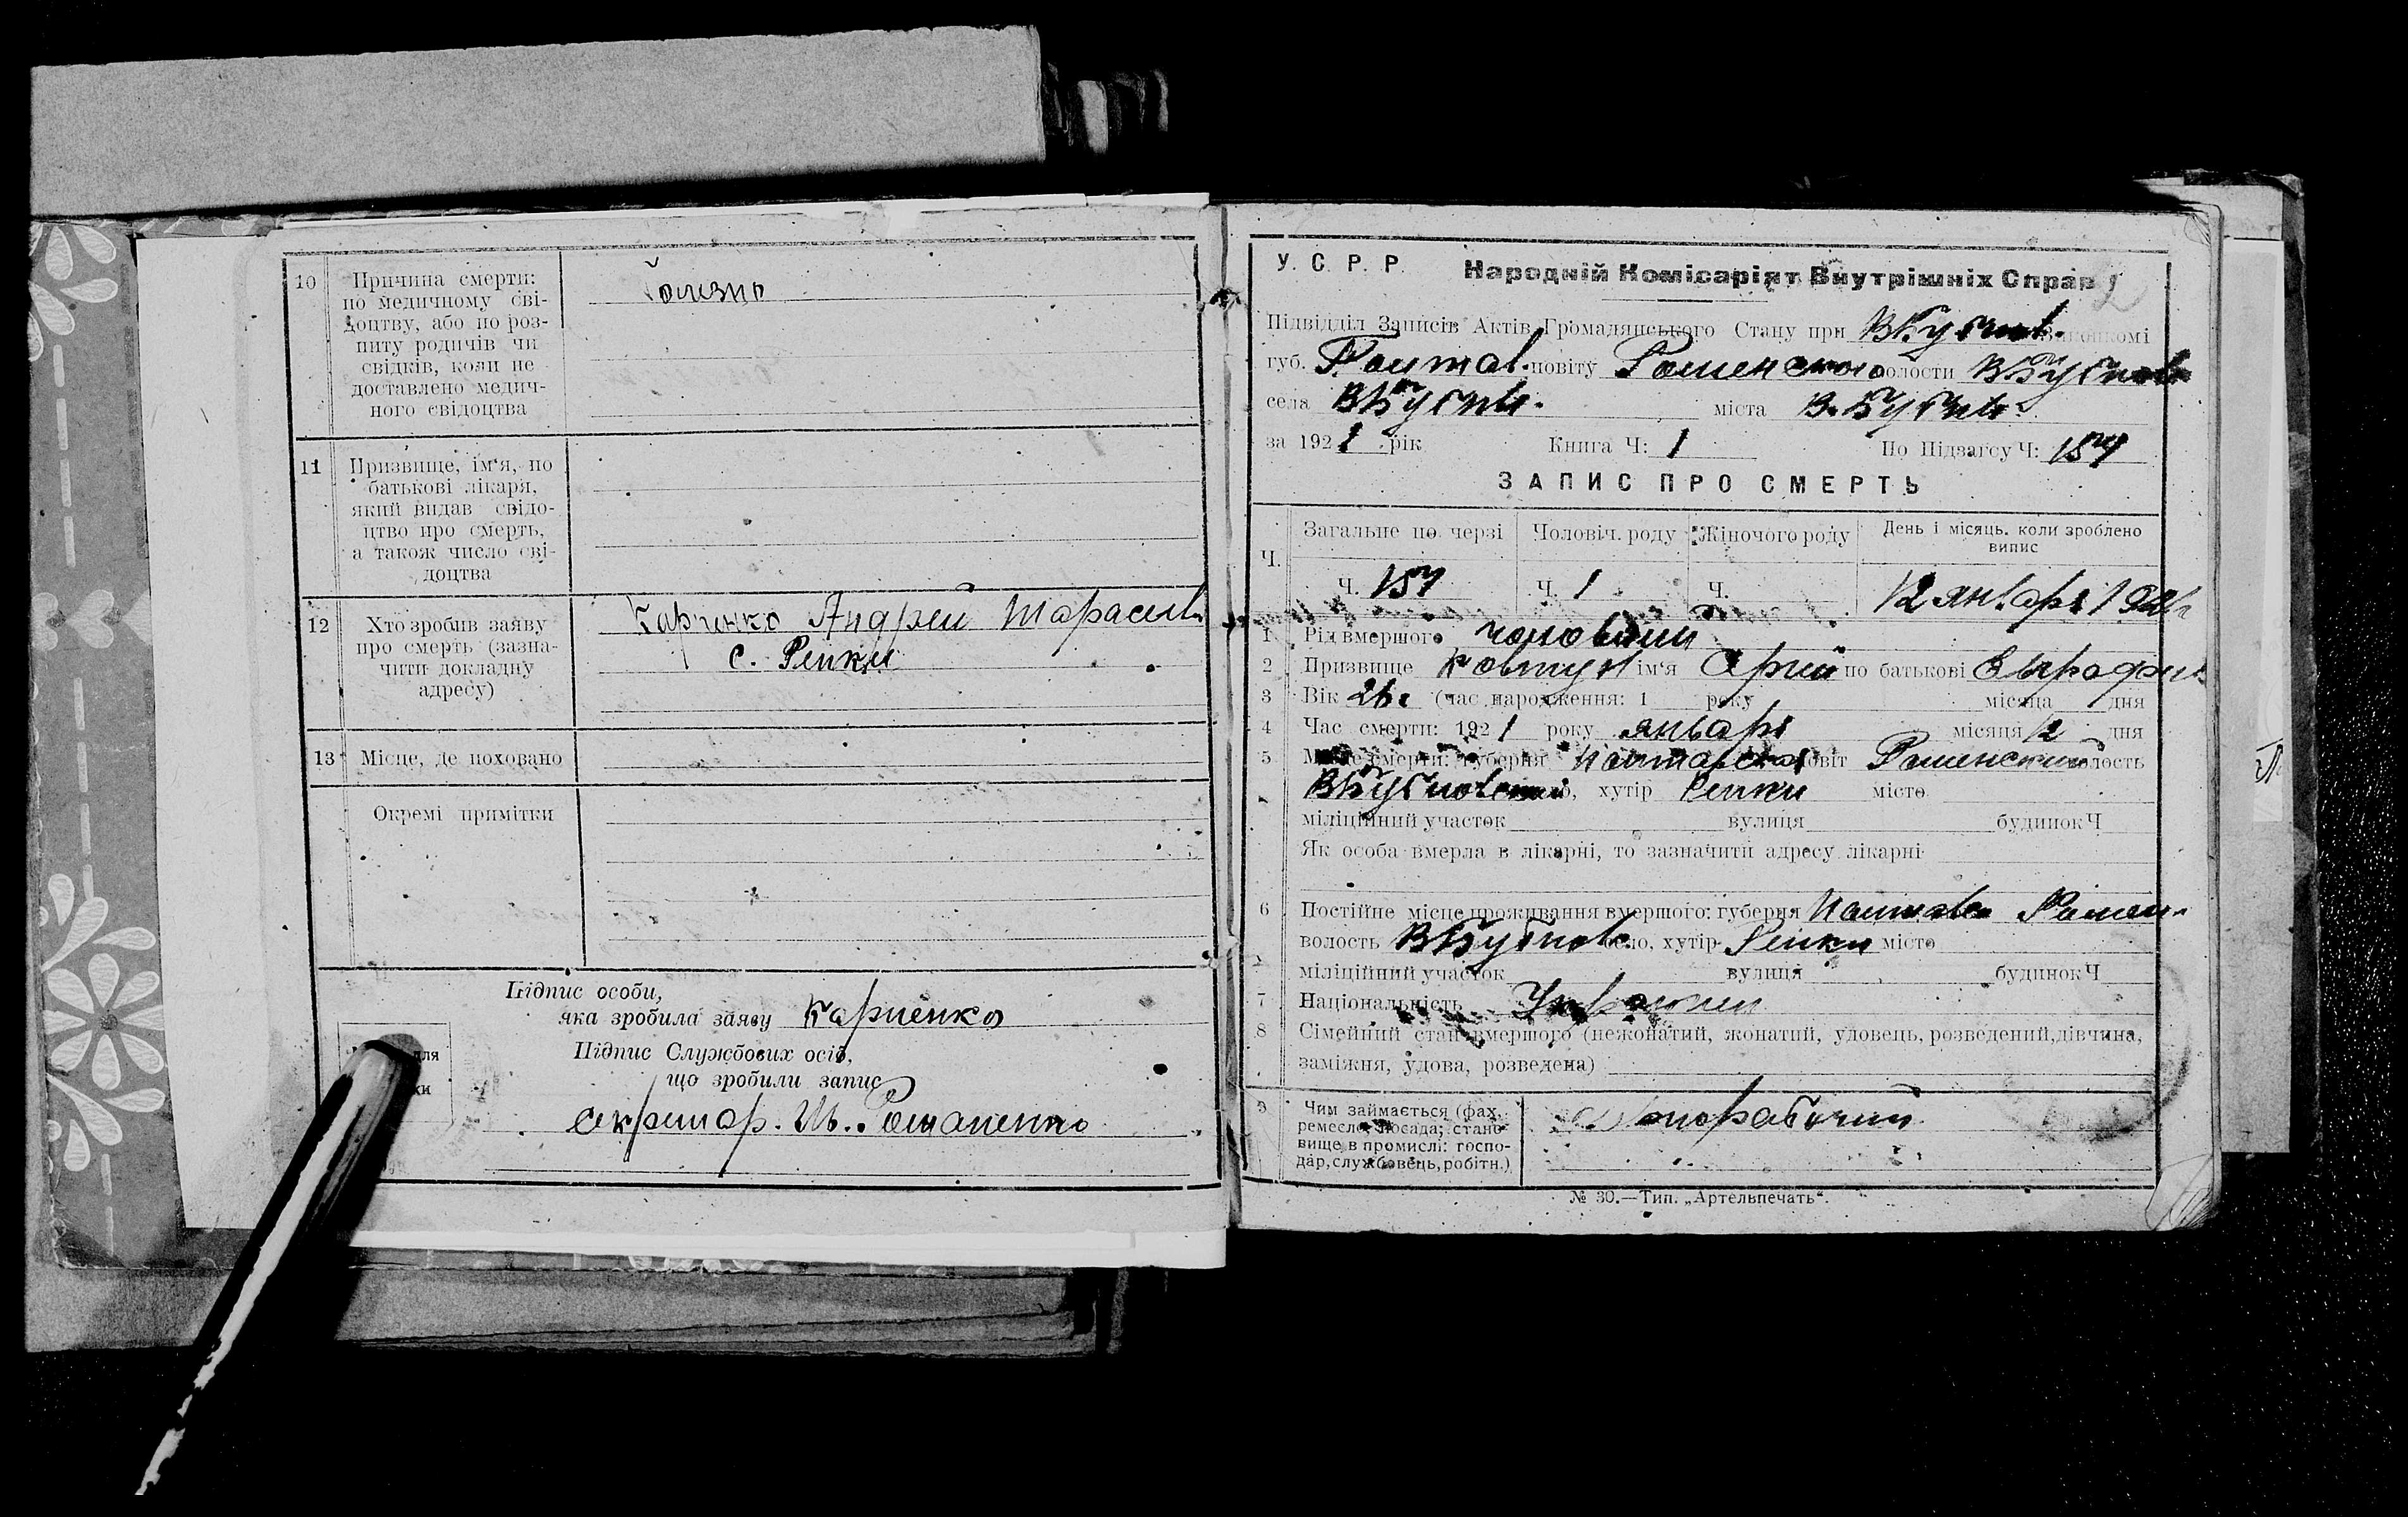 10 Причина смерти: по медичному сві-
доцтву, або по роз-
питу родичів чи
свідків, коли не
доставлено медич-
ного свідоцтва
Болезнь
11 Призвище, ім'я, по
батькові лікаря,
який видав свідо-
цтво про смерть,
а також число сві-
доцтва
12 Хто зробив заяву
про смерть (зазна-
чити докладну
адресу)
Карпенко Андрей Тарасов
с. Репки
13 Місце, де поховано
Окремі примітки
Підпис особи,
яка зробила заяву Карпенко
Підпис Службових осіб,
що зробили запис
для
ки
секретар. Романенко
У. С. Р. Р. Народній Комісаріят Внутрішніх Справ
2
Підвідділ Записів Актів Громадянського Стану при ВБубнов.
губ. Полтав. повіту Роменского волости ВБубнов
села ВБубнов. міста В.Бубнов.
за 1921 рік Книга Ч: 1 По Підзагсу Ч: 157
ЗАПИС ПРО СМЕРТЬ
Ч. Загальне по черзі Чоловіч. роду Жіночого роду День і місяць, коли зроблено
випис
Ч. 157 Ч. 1 Ч. 12 января 1921г
1 Рід вмершого
2 Призвище Ковтун ім'я по батькові
3 Вік 26. (час народження: 1 року місяца дня
4 Час смерти: 1921 року января місяця 12 дня
5 Місце смерти: губерня Полтавская повіт Роменский волость
ВБубновский, хутір Репки місто
міліційний участок вулиця будинок Ч
Як особа вмерла в лікарні, то зазначити адресу лікарні
6 Постійне місце проживання вмершого: губерня Полтавск Ромен.
волость ВБубнов село, хутір Репки місто
міліційний участок вулиця будинок Ч
7 Національність
8 Сімейний стан вмершого (нежонатий, жонатий, удовець, розведений, дівчина,
заміжня, удова, розведена)
9 Чим займається (фах,
ремесло, посада; стано-
вище в промислі: госпо-
дар, службовець, робітн.)
№ 30.—Тип. „Артельпечать".